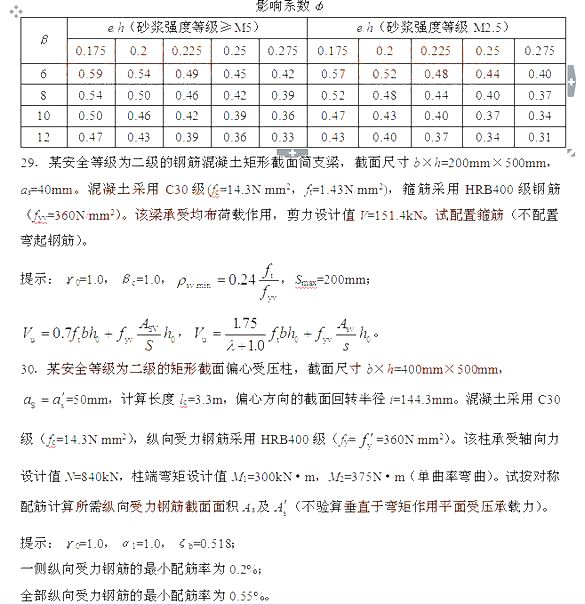 影响系数 φ
β e/h（砂浆强度等级≥M5） e/h（砂浆强度等级 M2.5）
0.175 0.2 0.225 0.25 0.275 0.175 0.2 0.225 0.25 0.275
6 0.59 0.54 0.49 0.45 0.42 0.57 0.52 0.48 0.44 0.40
8 0.54 0.50 0.46 0.42 0.39 0.52 0.48 0.44 0.40 0.37
10 0.50 0.46 0.42 0.39 0.36 0.47 0.43 0.40 0.37 0.34
12 0.47 0.43 0.39 0.36 0.33 0.43 0.40 0.37 0.34 0.31
29．某安全等级为二级的钢筋混凝土矩形截面简支梁，截面尺寸 b×h=200mm×500mm，
as=40mm。混凝土采用 C30 级(fc=14.3N/mm²，ft=1.43N/mm²)，箍筋采用 HRB400 级钢筋
（fyv=360N/mm²）。该梁承受均布荷载作用，剪力设计值 V=151.4kN。试配置箍筋（不配置
弯起钢筋）。
提示：γ0=1.0，βc=1.0，ρsv,min=0.24 ft/fyv，Smax=200mm；
Vu=0.7ftbh0+fyv Asv/S h0，Vu=1.75/(λ+1.0) ftbh0+fyv Asv/s h0。
30．某安全等级为二级的矩形截面偏心受压柱，截面尺寸 b×h=400mm×500mm，
as=a′s=50mm，计算长度 lc=3.3m，偏心方向的截面回转半径 i=144.3mm。混凝土采用 C30
级（fc=14.3N/mm²），纵向受力钢筋采用 HRB400 级（fy=f′y=360N/mm²）。该柱承受轴向力
设计值 N=840kN，柱端弯矩设计值 M1=300kN·m，M2=375N·m（单曲率弯曲）。试按对称
配筋计算所需纵向受力钢筋截面面积 As及 A′s（不验算垂直于弯矩作用平面受压承载力）。
提示：γ0=1.0，α1=1.0，ζb=0.518；
一侧纵向受力钢筋的最小配筋率为 0.2%；
全部纵向受力钢筋的最小配筋率为 0.55%。